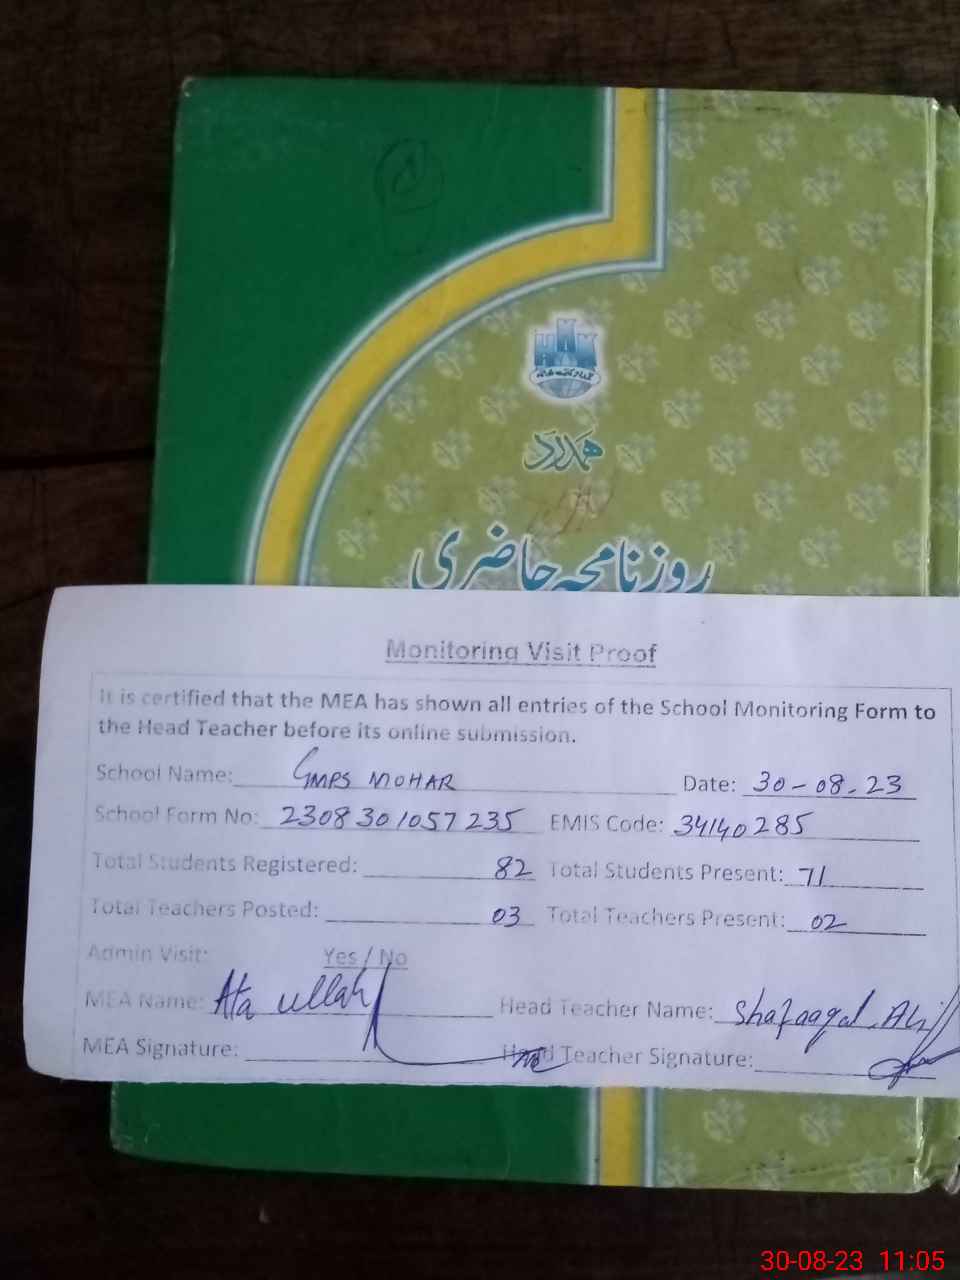 HAK
ہمدرد
روزنامچہ حاضری
Monitoring Visit Proof
It is certified that the MEA has shown all entries of the School Monitoring Form to
the Head Teacher before its online submission.
School Name: GMPS MOHAR Date: 30-08-23
School Form No: 2308301057235 EMIS Code: 34140285
Total Students Registered: 82 Total Students Present: 71
Total Teachers Posted: 03 Total Teachers Present: 02
Admin Visit: Yes / No
MEA Name: Ata ullah Head Teacher Name: Shafaaqat Ali
MEA Signature: Head Teacher Signature:
30-08-23 11:05